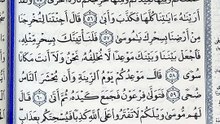 أَرَيْنَٰهُ ءَايَٰتِنَا كُلَّهَا فَكَذَّبَ وَأَبَىٰ ٥٦ قَالَ أَجِئْتَنَا لِتُخْرِجَنَا
مِنْ أَرْضِنَا بِسِحْرِكَ يَٰمُوسَىٰ ٥٧ فَلَنَأْتِيَنَّكَ بِسِحْرٍ مِّثْلِهِۦ
فَٱجْعَلْ بَيْنَنَا وَبَيْنَكَ مَوْعِدًا لَّا نُخْلِفُهُۥ نَحْنُ وَلَآ أَنتَ مَكَانًا
سُوًى ٥٨ قَالَ مَوْعِدُكُمْ يَوْمُ ٱلزِّينَةِ وَأَن يُحْشَرَ ٱلنَّاسُ
ضُحًى ٥٩ فَتَوَلَّىٰ فِرْعَوْنُ فَجَمَعَ كَيْدَهُۥ ثُمَّ أَتَىٰ ٦٠ قَالَ
لَهُم مُّوسَىٰ وَيْلَكُمْ لَا تَفْتَرُوا۟ عَلَى ٱللَّهِ كَذِبًا فَيُسْحِتَكُم بِعَذَابٍ